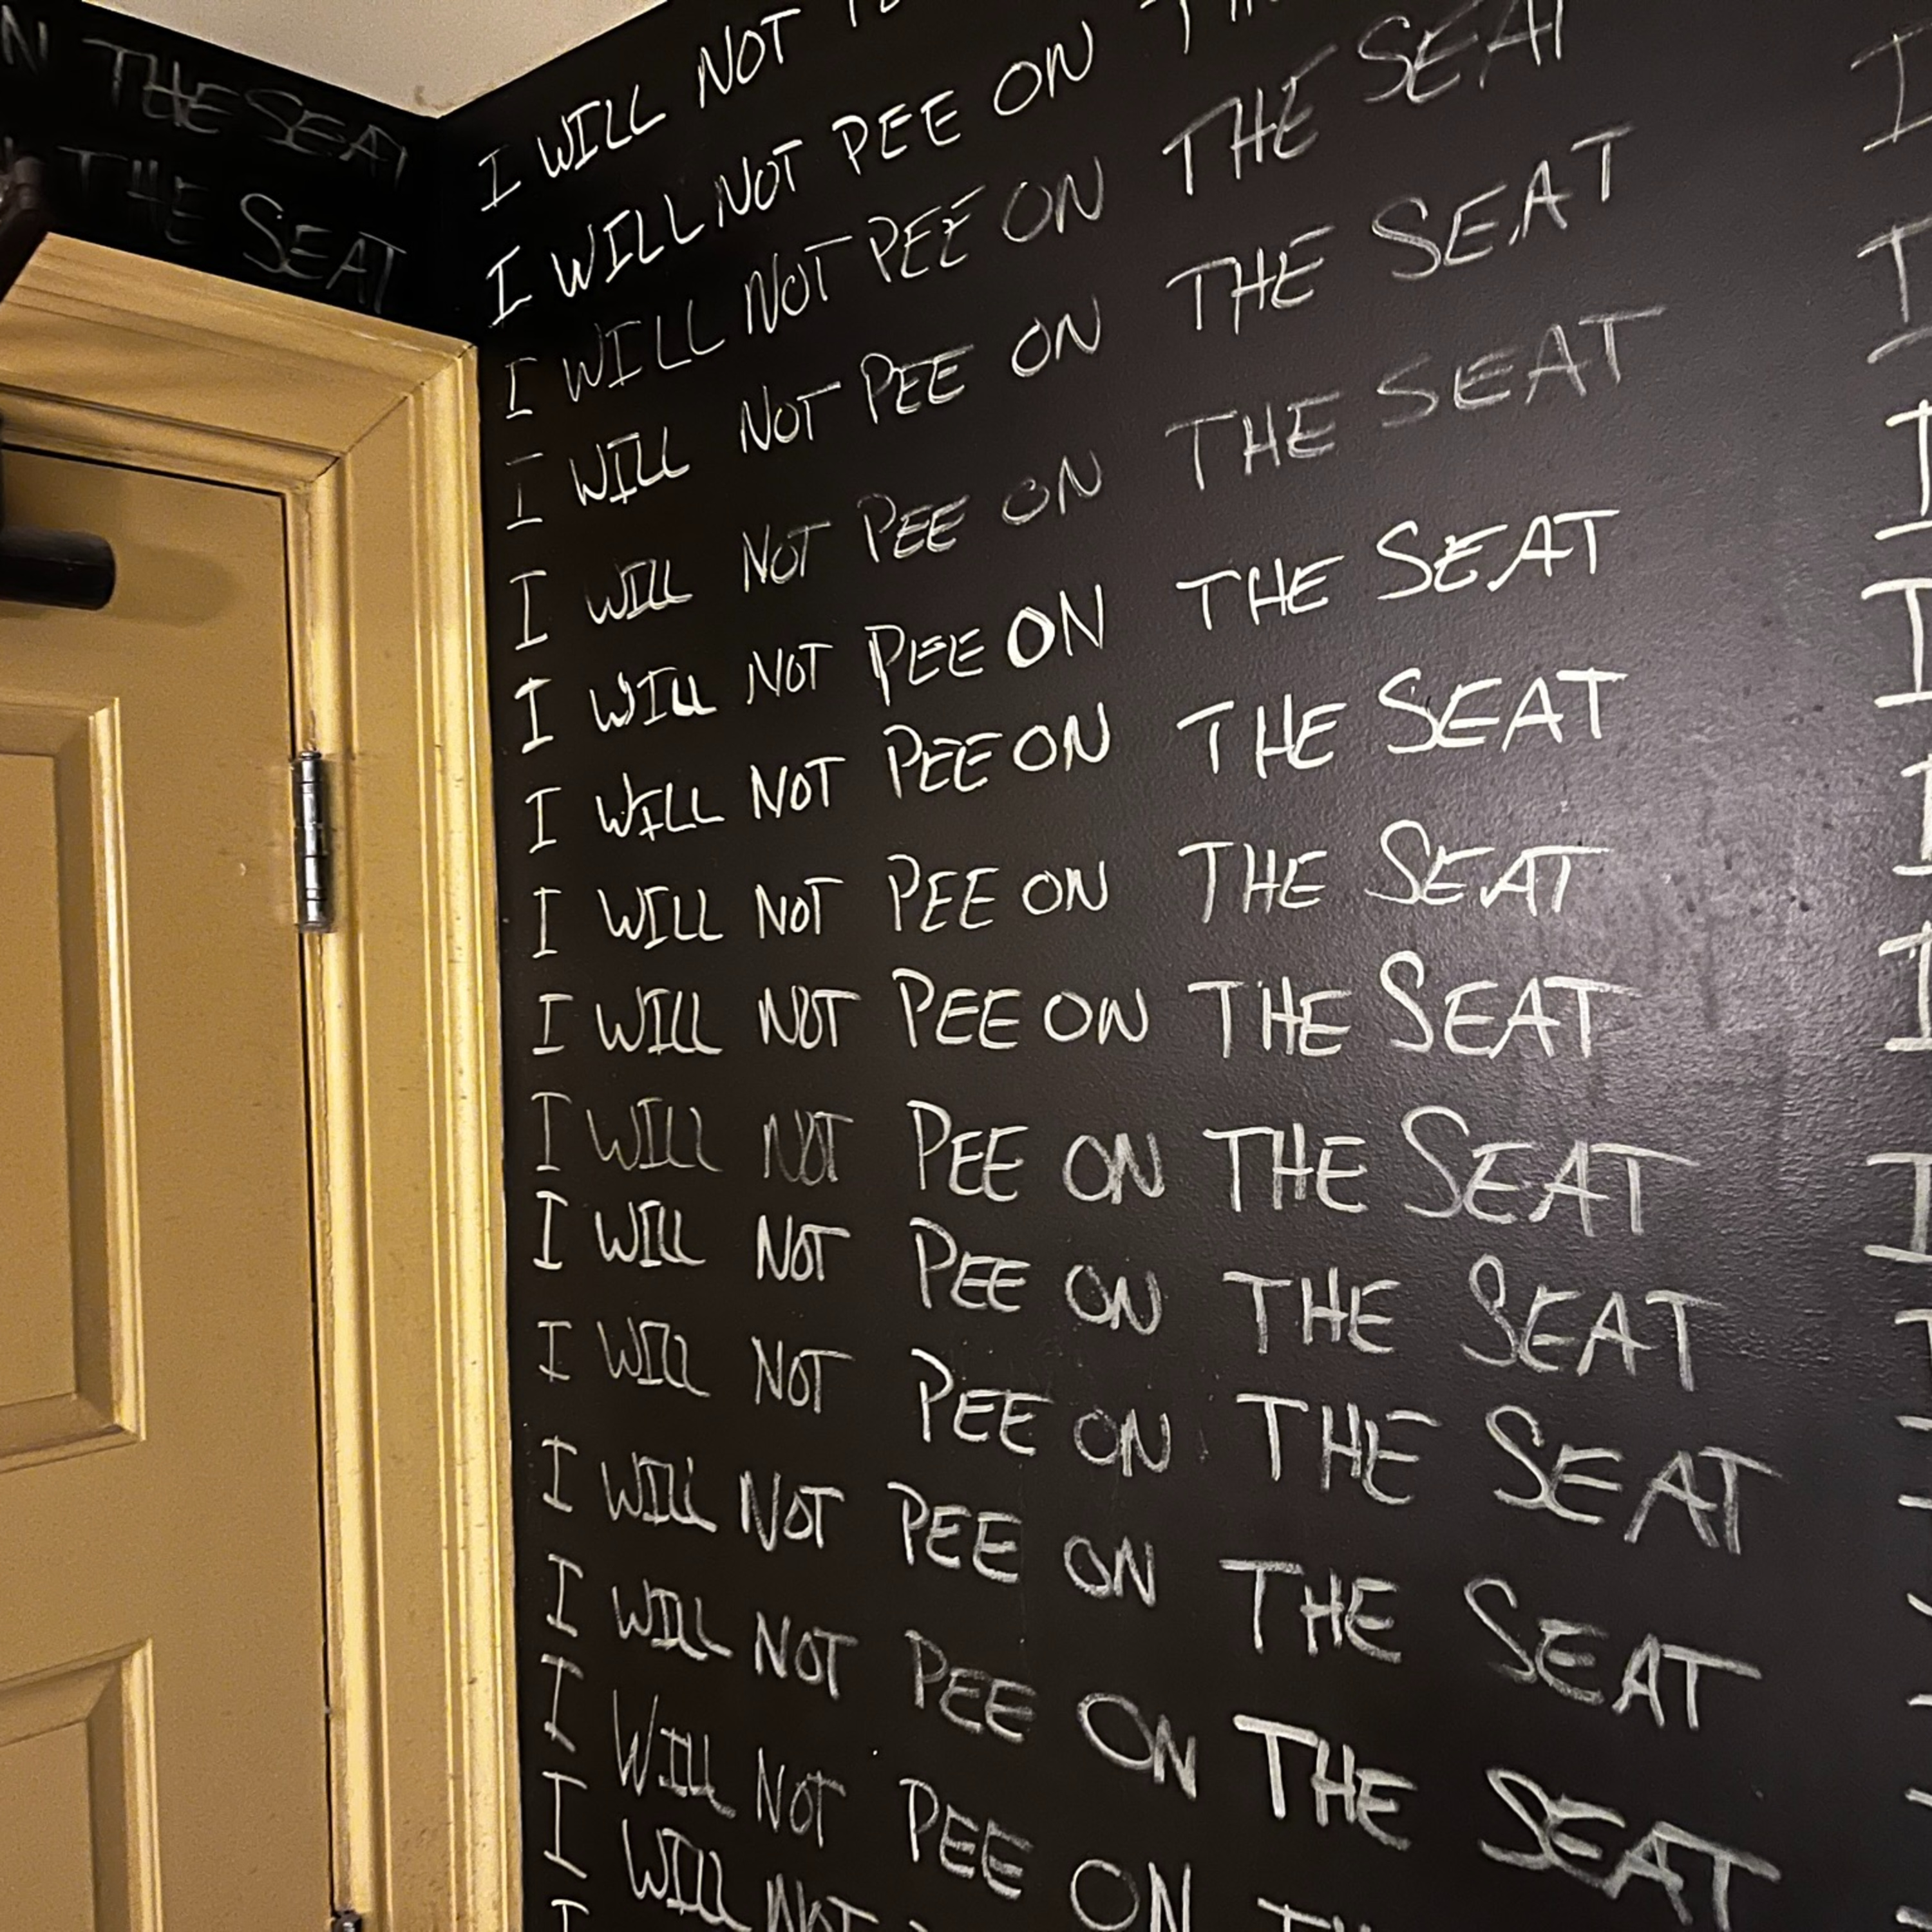 N THE SEAT
THE SEAT
I WILL NOT
I WILL NOT PEE ON
I WILL NOT PEE ON THE SEAT
I WILL NOT PEE ON THE SEAT
I WILL NOT PEE ON THE SEAT
I WILL NOT PEE ON THE SEAT
I WILL NOT PEE ON THE SEAT
I WILL NOT PEE ON THE SEAT
I WILL NOT PEE ON THE SEAT
I WILL NOT PEE ON THE SEAT
I WILL NOT PEE ON THE SEAT
I WILL NOT PEE ON THE SEAT
I WILL NOT PEE ON THE SEAT
I WILL NOT PEE ON THE SEAT
I WILL NOT PEE ON
I WILL NOT
I
I
I
I
I
I
I
I